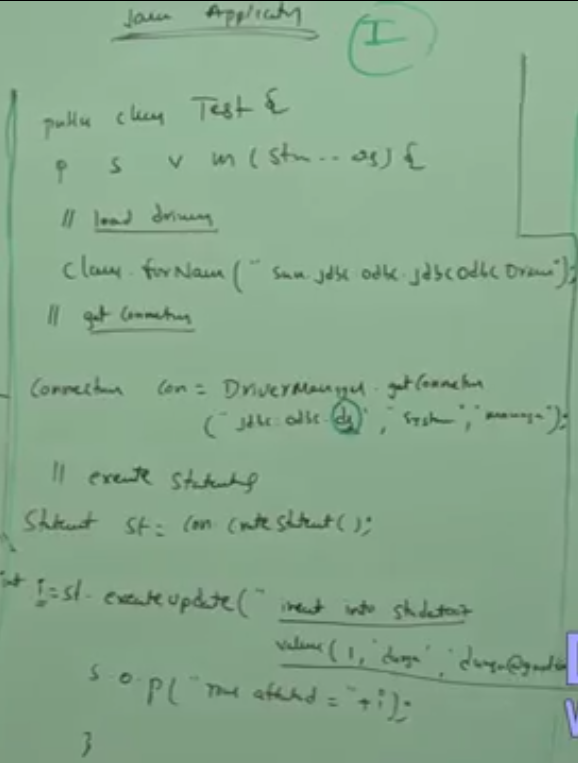 Java Application
I
public class Test {
p s v m (Str... as) {
// load driver
Class.forName("sun.jdbc.odbc.JdbcOdbcDriver");
// get Connection
Connection con = DriverManager.getConnection
("jdbc:odbc:ds", "system", "manager");
// execute statement
Statement st = con.createStatement();
int i = st.executeUpdate("insert into
values(1, 'durga', 'durga@gmail
s.o.p("rows affected = "+i);
}